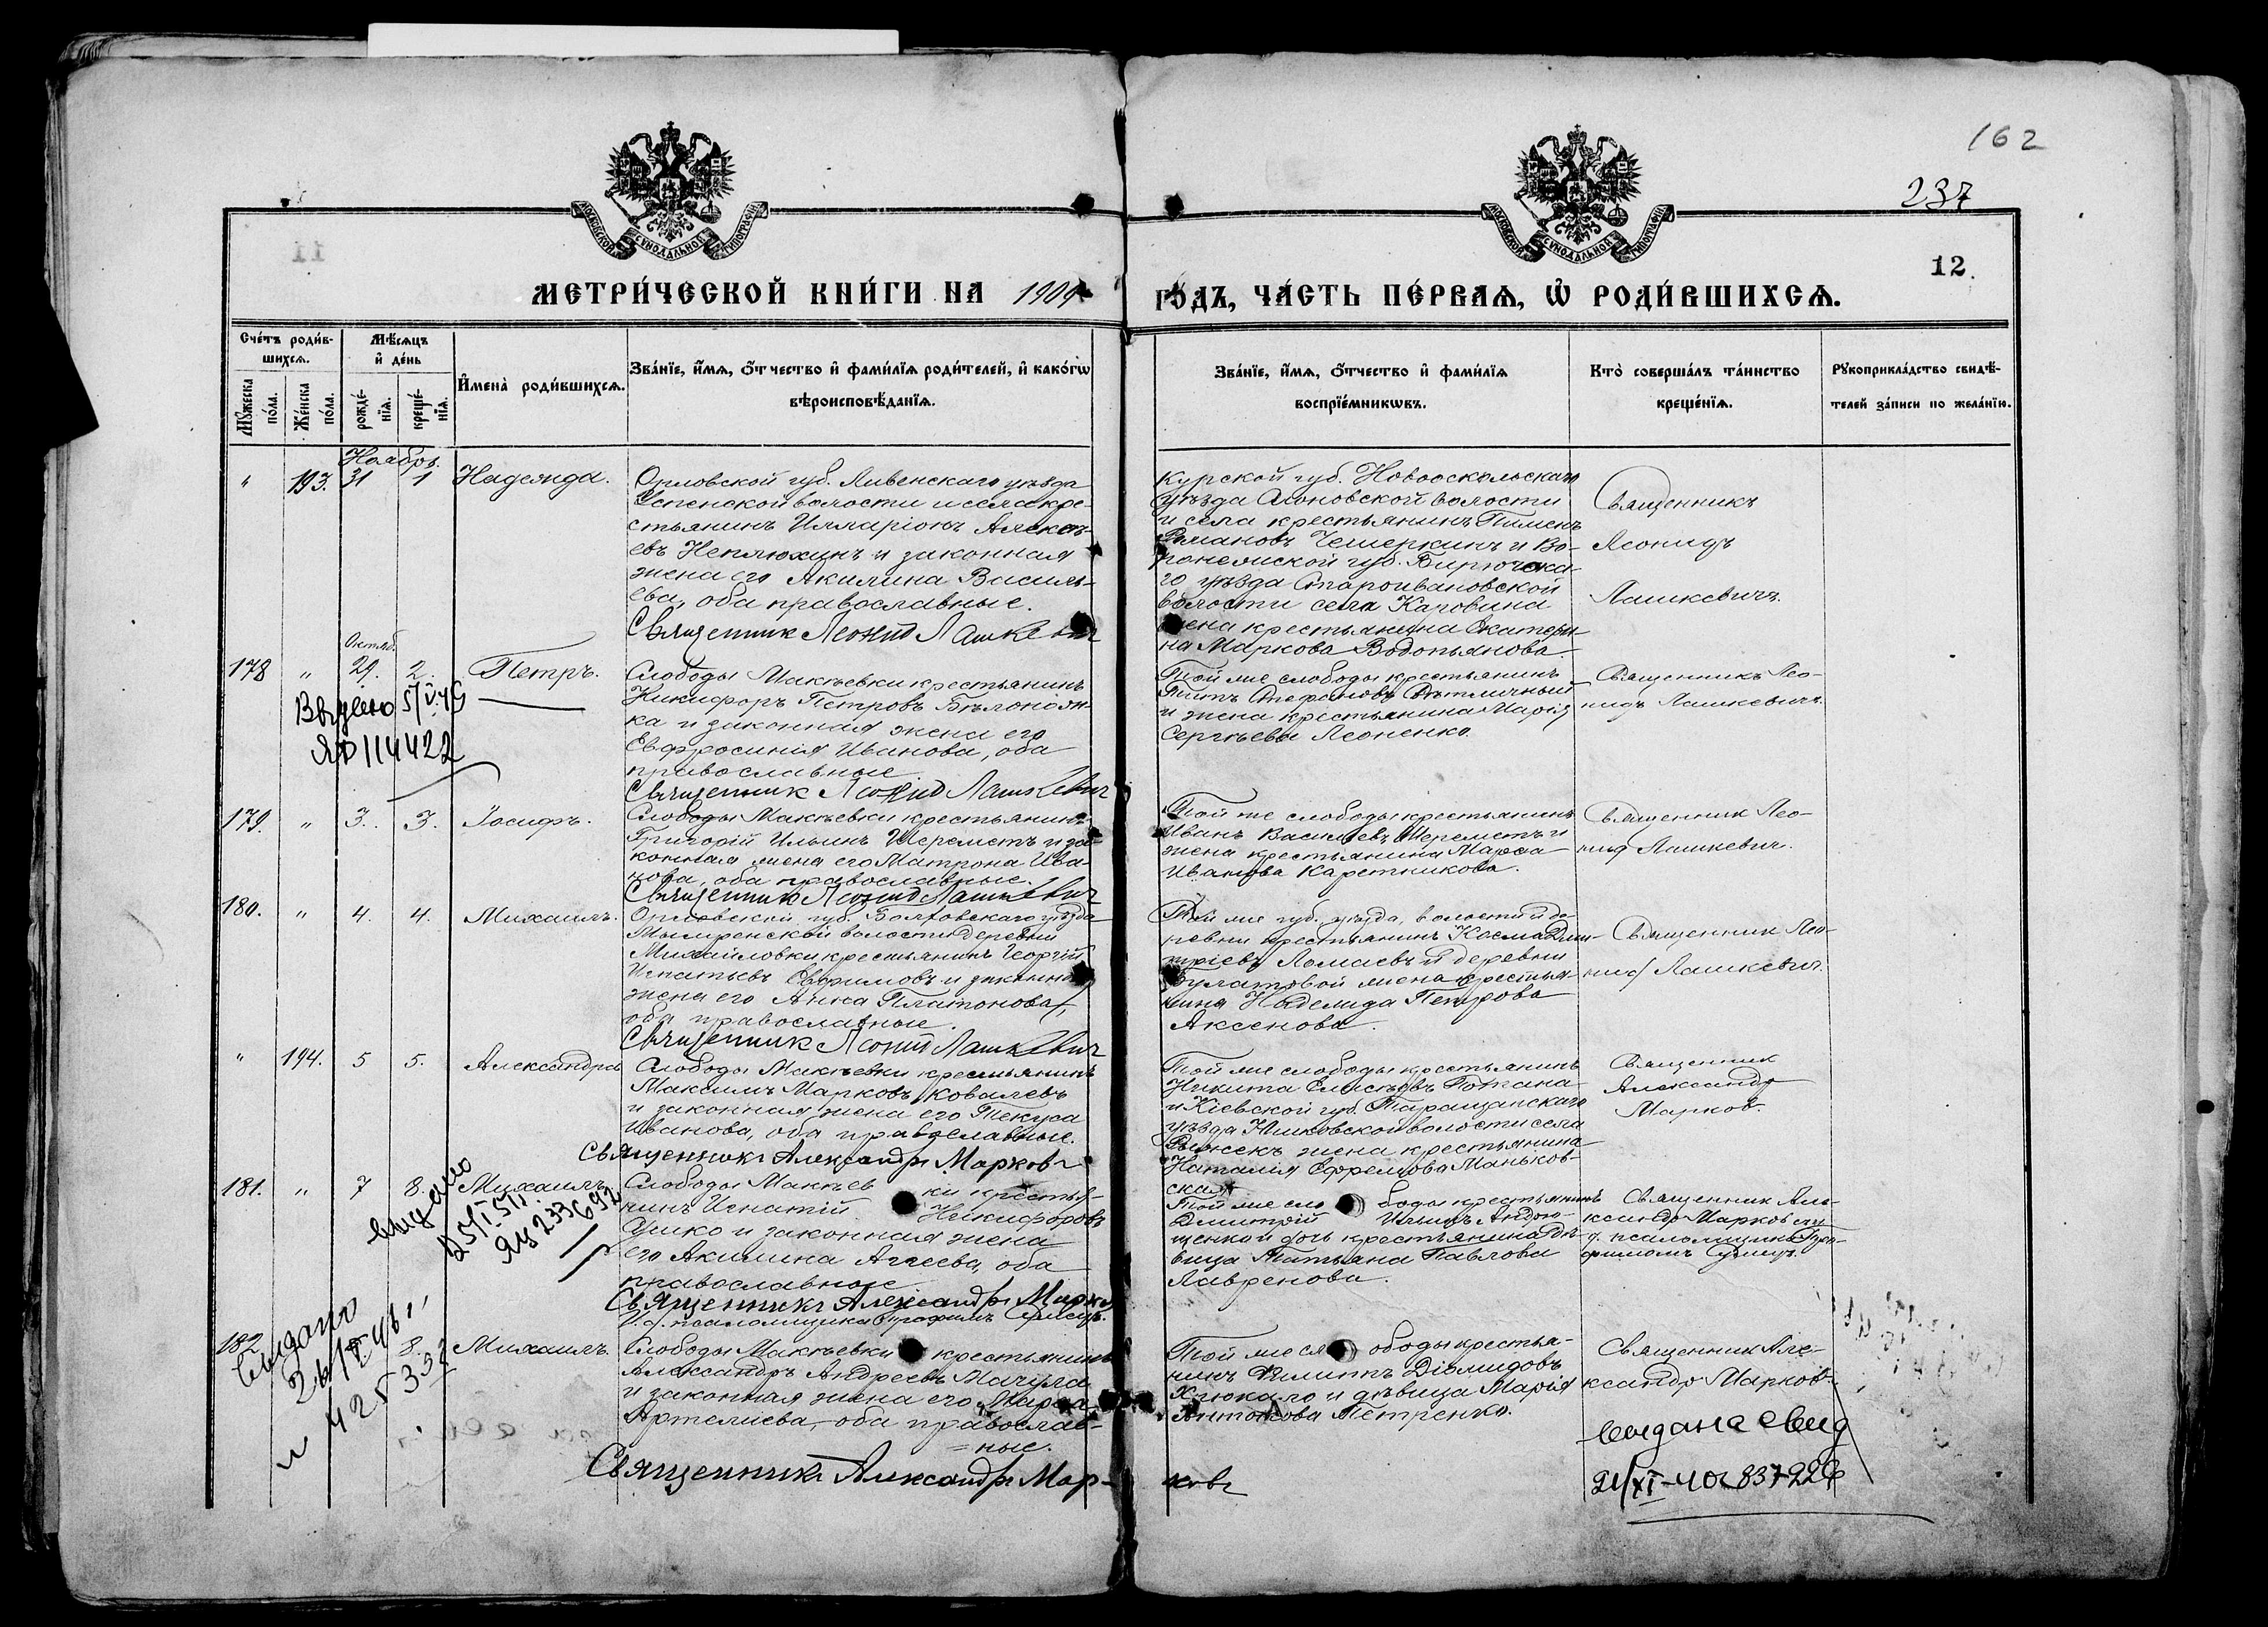 162
237
12.
МОСКОВСКОЙ СѴНОДАЛЬНОЙ ТИПОГРАФІИ
МОСКОВСКОЙ СѴНОДАЛЬНОЙ ТИПОГРАФІИ
МЕТРИ́ЧЕСКОЙ КНИ́ГИ НА 1909
ГО́ДЪ, ЧА́СТЬ ПЕ́РВАѦ, Ѡ҆ РОДИ́ВШИХСѦ.
Сче́тъ роди́в-
шихсѧ.
Мꙋ́жеска по́ла.
Же́нска по́ла.
Мѣ́сѧцъ
и҆ де́нь
рожде́-
нїѧ.
креще́-
нїѧ.
И҆мена̀ роди́вшихсѧ.
Зва́нїе, и҆́мѧ, ѻ҆́тчество и҆ фами́лїѧ роди́телей, и҆ како́гѡ
вѣроисповѣ́данїѧ.
Зва́нїе, и҆́мѧ, ѻ҆́тчество и҆ фами́лїѧ
воспрїе́мникѡвъ.
Кто̀ соверша́лъ та́инство
креще́нїѧ.
Рꙋкоприкла́дство свидѣ́-
телей за́писи по жела́нїю.
Ноябрь.
" 193. 31 1 Надежда.
Орловской губ. Ливенскаго уѣзда
Успенской волости и села кре-
стьянинъ Илларіонъ Алексѣ-
евъ Неплюхинъ и законная
жена его Акилина Василь-
ева, оба православные.
Священник Леонид Лашкевич
Курской губ. Новооскольскаго
уѣзда волости
и села крестьянинъ Пименъ
Романовъ Чешеркинъ и Во-
ронежской губ. Бирюченска-
го уѣзда Староивановской
волости села
жена крестьянина Екатери-
на Маркова Водопьянова.
Священникъ
Леонидъ
Лашкевичъ.
Октяб.
178 " 29. 2. Петръ.
Слободы Макѣевки крестьянинъ
Никифоръ Петровъ Бѣлонож-
ка и законная жена его
Евфросинія Иванова, оба
православные
Священник Леонид Лашкевич
Той же слободы крестьянинъ
Титъ Стефановъ
и жена крестьянина Марія
Сергѣева Леоненко.
Священникъ Лео-
нидъ Лашкевичъ.
ЯФ 114422
179. " 3. 3. Іосифъ.
Слободы Макѣевки крестьянинъ
Григорій Ильинъ Шереметъ и за-
конная жена его Матрона Ива-
нова, оба православные.
Священник Леонид Лашкевич
Той же слободы крестьянинъ
Иванъ Васильевъ Шереметъ и
жена крестьянина Марфа
Иванова Каретникова.
Священник Лео-
нид Лашкевич.
180. " 4. 4. Михаилъ.
Орловской губ. Болховскаго уѣзда
волости деревни
Михайловки крестьянинъ Георгій
Игнатьевъ Ефимовъ и законная
жена его Анна Платонова,
оба православные.
Священник Леонид Лашкевич
Той же губ. уѣзда, волости и де-
ревни крестьянинъ Косма Дми-
тріевъ и деревни
Булатовой жена крестья-
нина Надежда Петрова
Аксенова.
Священник Лео-
нид Лашкевич.
" 194. 5 5. Александра
Слободы Макѣевки крестьянинъ
Максимъ Марковъ Ковалевъ
и законная жена его Текуса
Иванова, оба православные.
Священникъ Александръ Марковъ
Той же слободы крестьянинъ
Никита
и Кіевской губ. Таращанскаго
уѣзда волости села
жена крестьянина
Наталія Ефремова Маньков-
ская
Священник
Александр
Марков.
181. " 7 8. Михаилъ.
Слободы Макѣев ки крестья-
нинъ Игнатій Никифоровъ
и законная жена
его Акилина Агѣева, оба
православные
Священникъ Александръ Марков
И. д. псаломщика Трофимъ
Той же сло боды крестьянинъ
Дмитрій Ильинъ Андрю-
щенко и дочь крестьянина дѣ-
вица Татьяна Павлова
Лавренова.
Священник Але-
ксандр Марков
выдано
25/I 51 г.
ЯЦ 233692
182 8. Михаилъ.
Слободы Макѣевки крестьянинъ
Александръ Андреевъ Мачула
и законная жена его Марфа
Артемиева, оба православ-
=ные.
Священникъ Александръ Мар-
ковъ
Той же сл ободы крестья-
нинъ Филиппъ Діомидовъ
и дѣвица Марія
Антонова Петренко.
Священник Але-
ксандр Марков.
выдано
425332
выдана свид